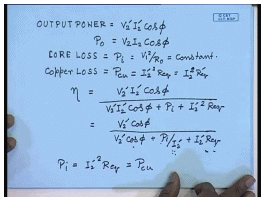 OUTPUT POWER = V₂' I₂' Cos φ
P₀ = V₂ I₂ Cos φ
CORE LOSS = Pᵢ = V₁²/R₀ = Constant.
Copper LOSS = P_cu = I₂'² Req = I₂² Req
η = V₂' I₂' Cos φ / (V₂' I₂' Cos φ + Pᵢ + I₂'² Req)
= V₂' Cos φ / (V₂' Cos φ + Pᵢ/I₂' + I₂' Req)
Pᵢ = I₂'² Req = P_cu